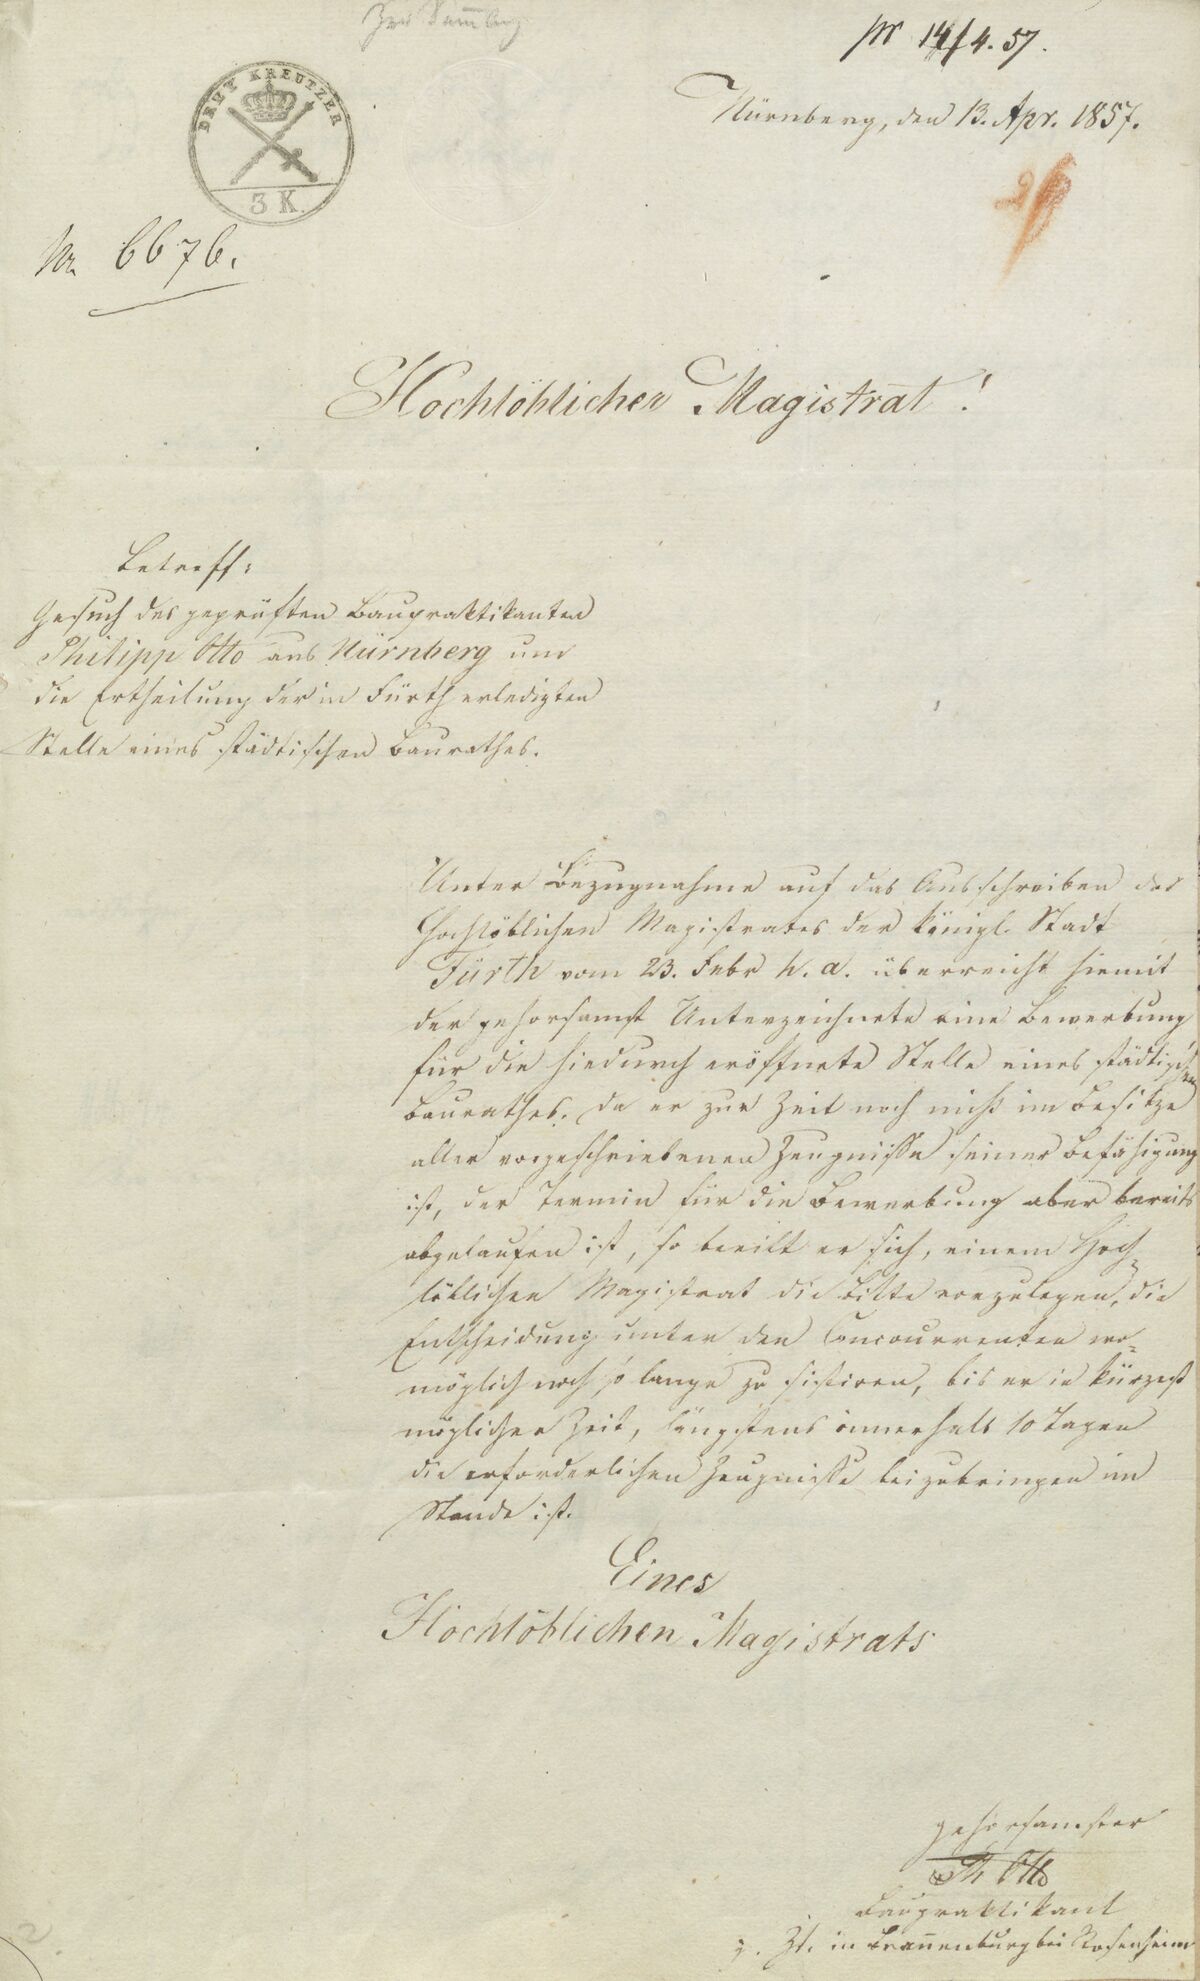 Zur Sammlung
pr 14/4. 57.
DREY KREUTZER
3 K.
Nürnberg, den 13. Apr. 1857.
Nr. 6676.
Hochlöblicher Magistrat!
Betreff:
Gesuch des geprüften Baupraktikanten
Philipp Otto aus Nürnberg um
die Ertheilung der in Fürth erledigten
Stelle eines städtischen Baurathes.
Unter Bezugnahme auf das Ausschreiben des
Hochlöblichen Magistrates der königl. Stadt
Fürth vom 23. Febr h. a. überreicht hiemit
der gehorsamst Unterzeichnete eine Bewerbung
für die hiedurch eröffnete Stelle eines städtischen
Baurathes. Da er zur Zeit noch nicht im Besitze
aller vorgeschriebenen Zeugnisse seiner Befähigung
ist, der Termin für die Bewerbung aber bereits
abgelaufen ist, so beeilt er sich, einem Hoch-
löblichen Magistrat die Bitte vorzulegen, die
Entscheidung unter den Concurrenten wo-
möglich noch so lange zu sistiren, bis er in kürzest
möglicher Zeit, längstens innerhalb 10 Tagen
die erforderlichen Zeugnisse beizubringen im
Stande ist.
Eines
Hochlöblichen Magistrats
gehorsamster
Ph Otto
Baupraktikant
z. Zt. in Brannenburg bei Rosenheim
2